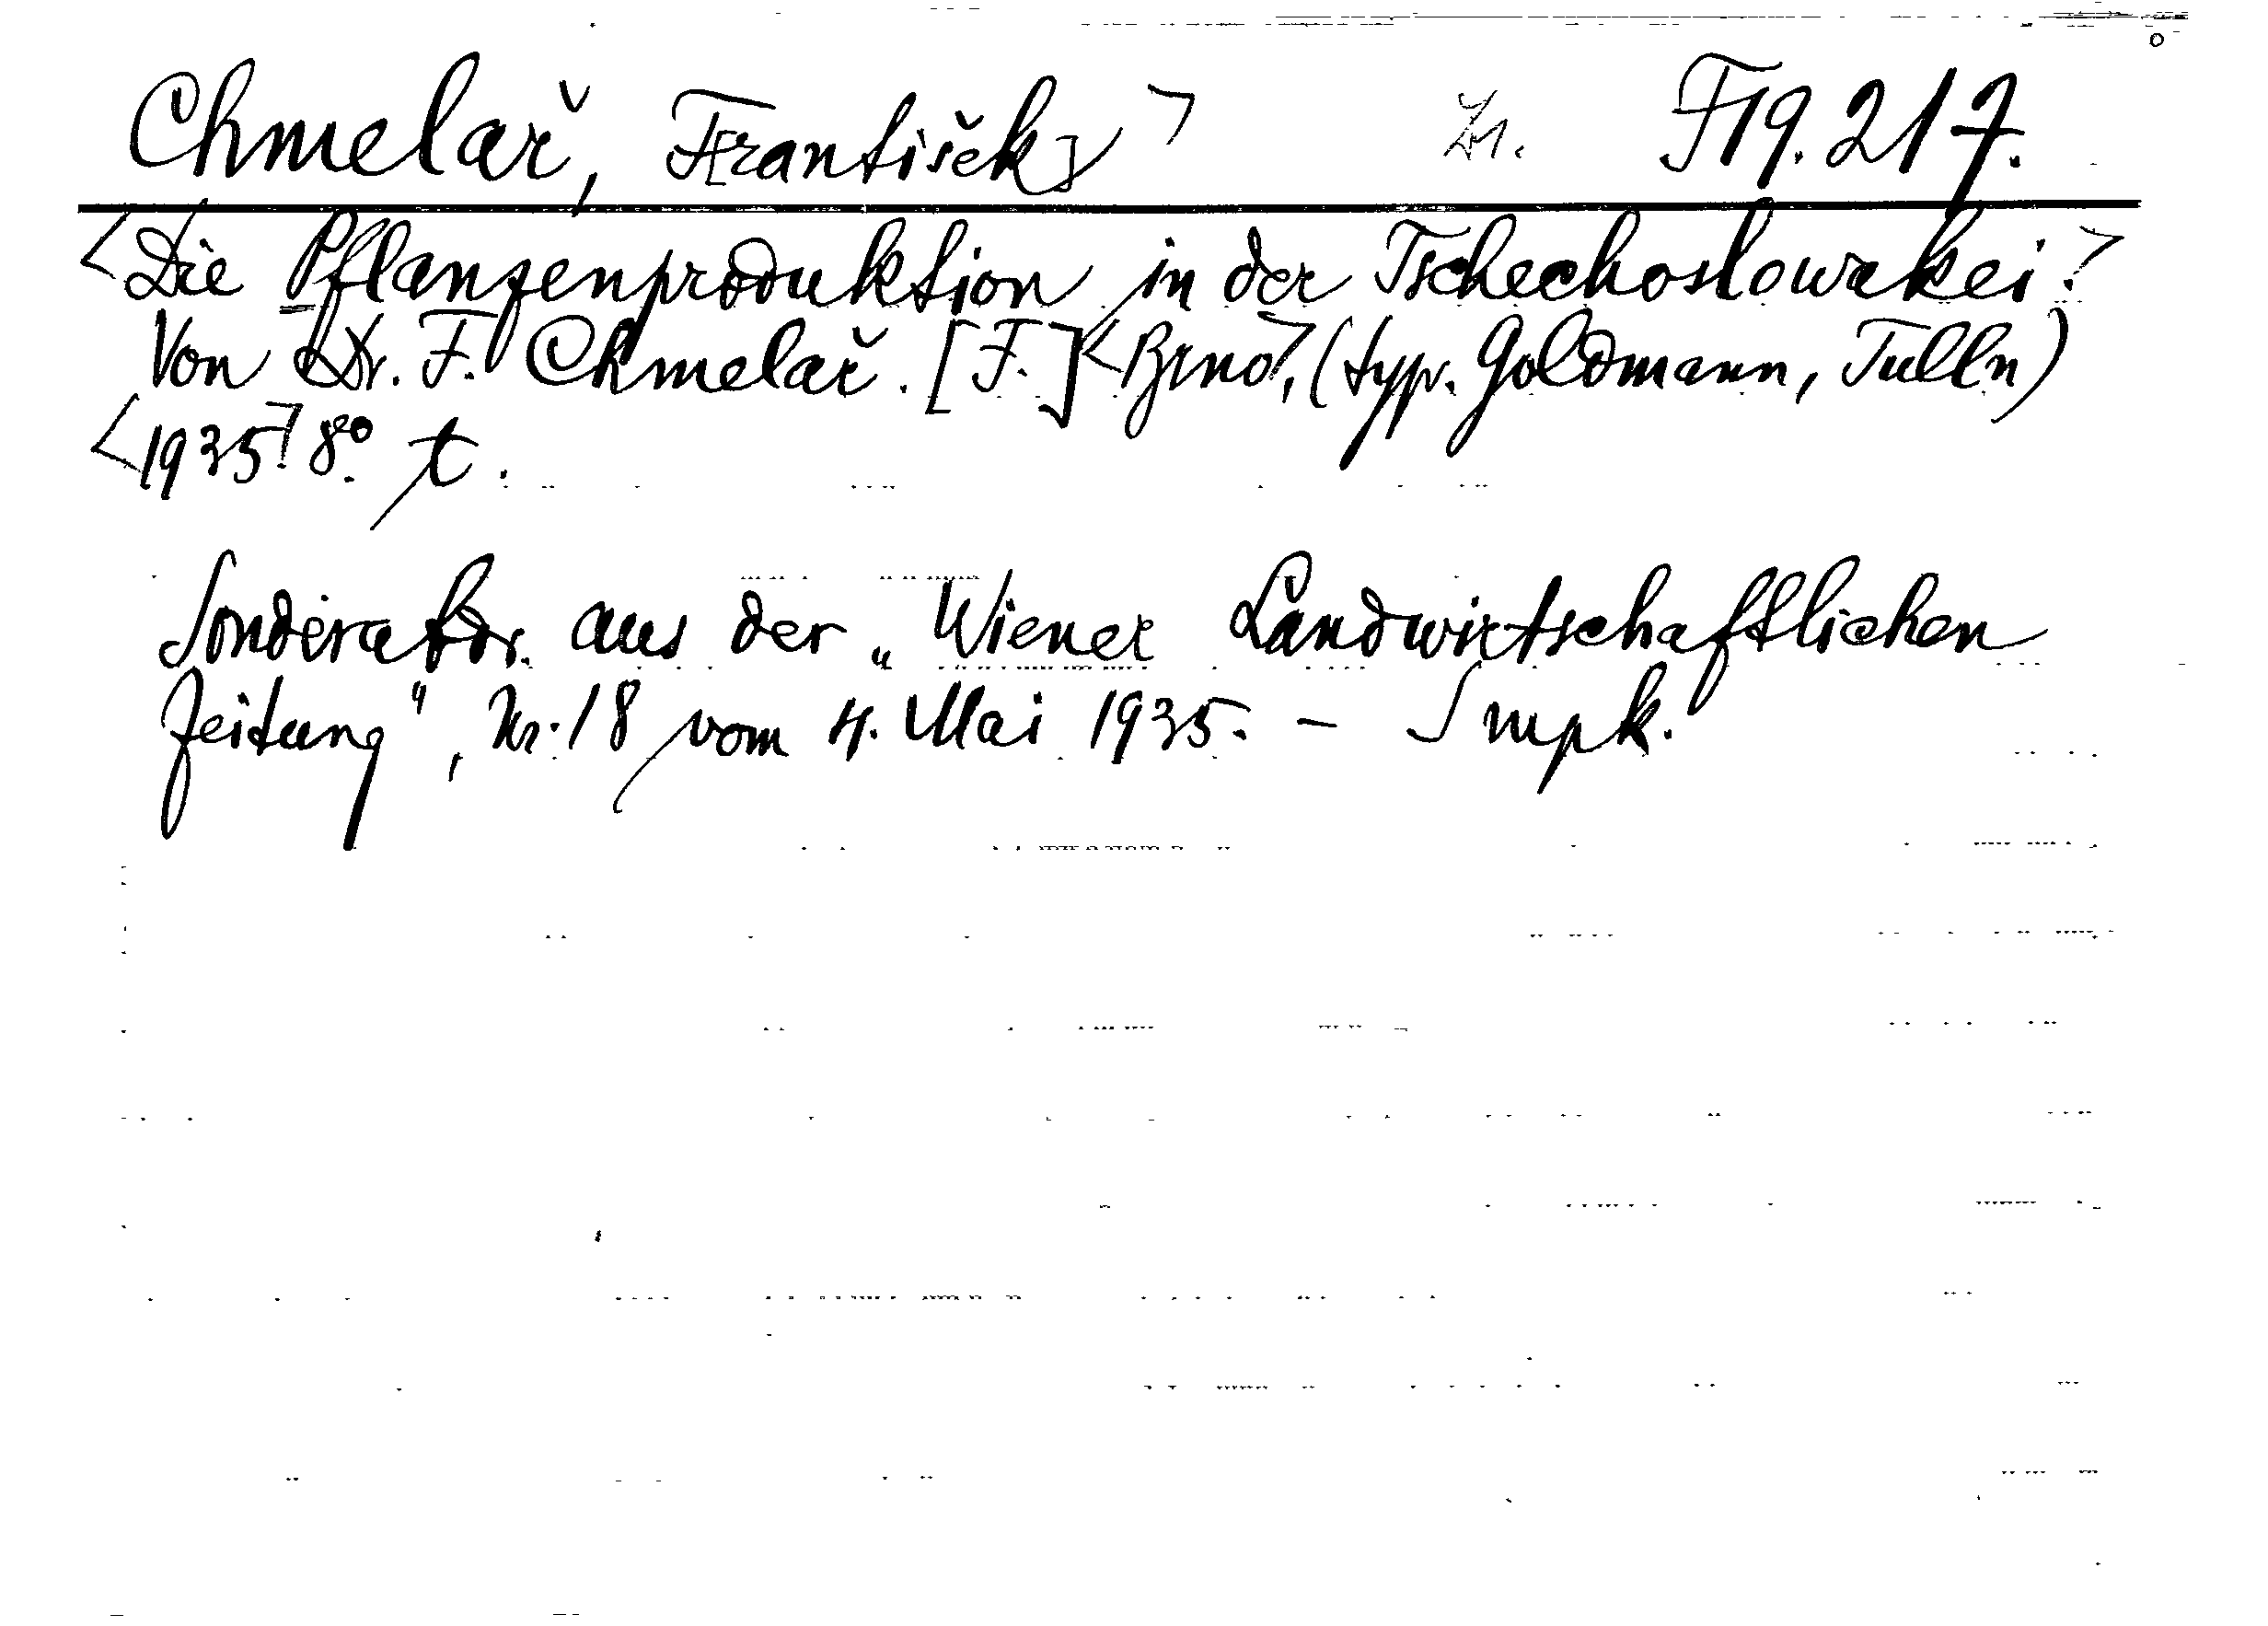 Chmelař, F[rantišek] F19.217.
Die Pflanzenproduktion in der Tschechoslowakei.
Von Dr. F. Chmelař. [F.] Brno, (typ. Goldmann, Tulln)
1935. 8° t.
Sonderabdr. aus der „Wiener Landwirtschaftlichen
Zeitung“, Nr. 18 vom 4. Mai 1935. –